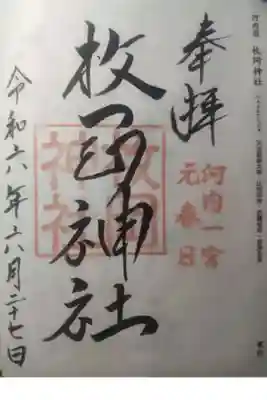 河内国 枚岡神社
奉拝
河内一宮
元春日
枚岡神社
枚岡神社
令和六年六月二十七日